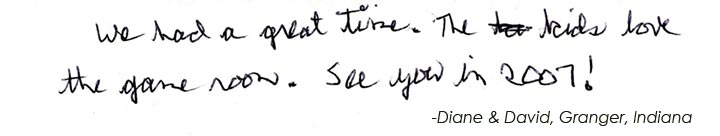 We had a great time. The kids love
the game room. See you in 2007!
-Diane & David, Granger, Indiana